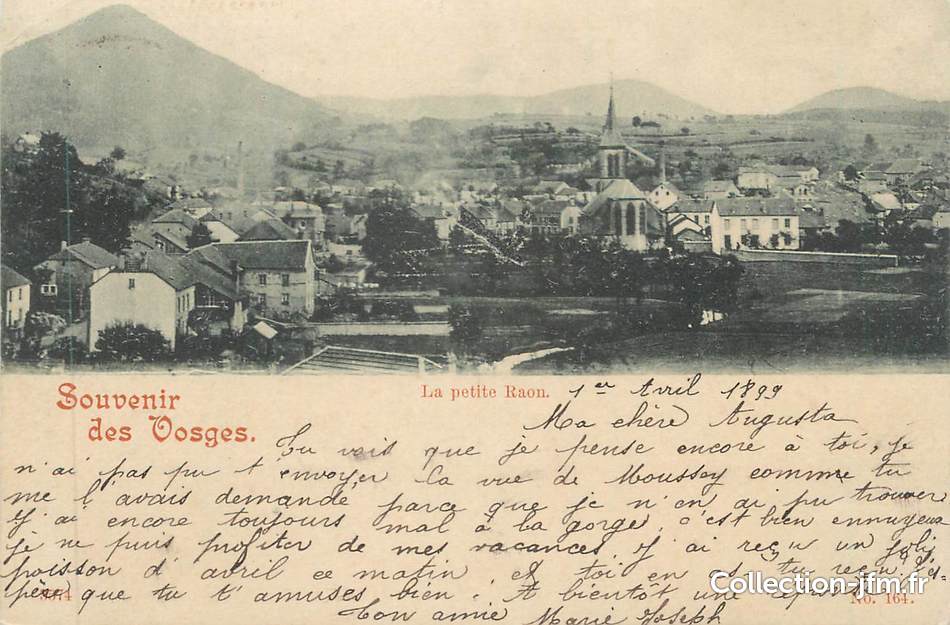 La petite Raon.
1er Avril 1899
Souvenir
des Vosges.
Ma chère Augusta
Tu vois que je pense encore à toi, je
n'ai pas pu t'envoyer la vue de Moussey comme tu
me l'avais demandé parce que je n'en ai pu trouver
J'ai encore toujours mal à la gorge, c'est bien ennuyeux
je ne puis profiter de mes vacances. J'ai reçu un joli
poisson d'avril ce matin, et toi en as tu reçu,
père que tu t'amuses bien. A bientôt une
Ton amie Marie Joseph
No. 164.
Collection-jfm.fr